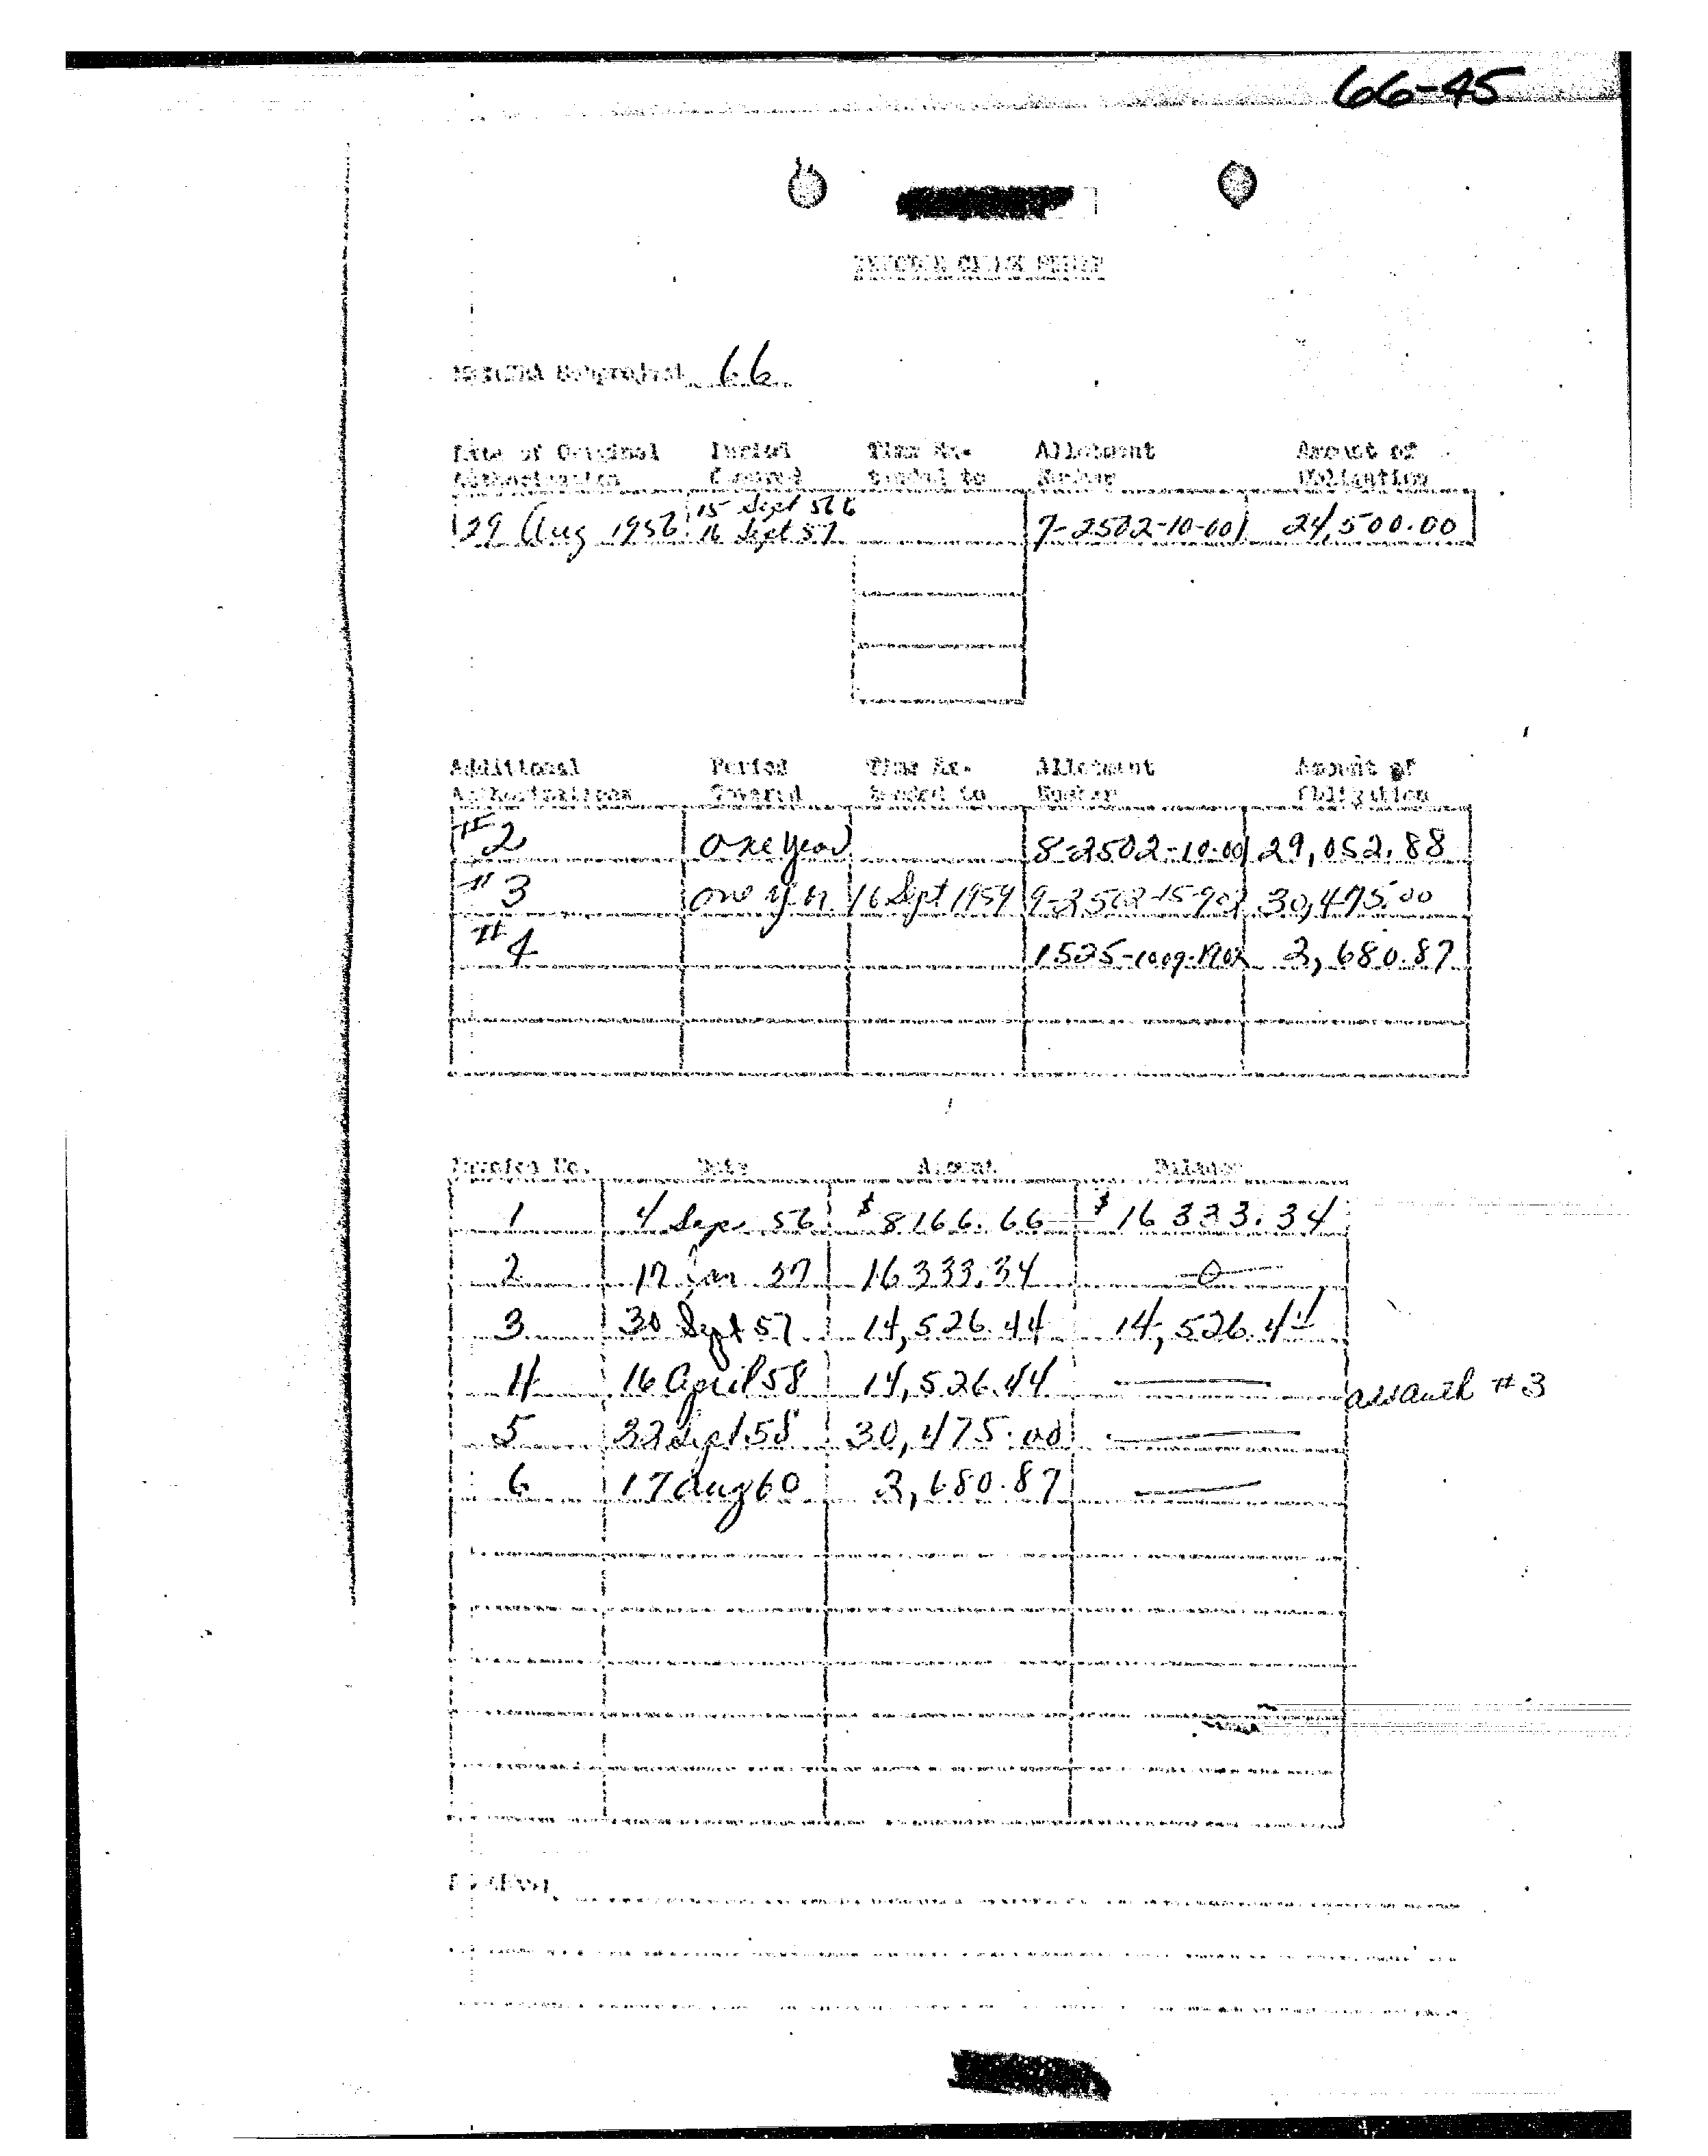 66-45
MKULTRA Subproject 66
Date of Original Period Time Ex- Allotment Amount of
Authorization Covered tended to Number Obligation
29 Aug 1956 15 Sept 56 7-2502-10-001 24,500.00
16 Sept 57
Additional Period Time Ex- Allotment Amount of
Authorizations Covered tended to Number Obligation
#2 one year 8-2502-10-001 29,052.88
#3 one yr. 16 Sept 1959 9-2502-15-902 30,475.00
#4 1525-1009-1902 2,680.87
Invoice No. Date Amount Balance
1 4 Sep 56 $8166.66 $16333.34
2 17 Jan 57 16333.34 -0-
3 30 Sept 57 14,526.44 14,526.44
4 16 April 58 14,526.44 —
5 22 Sept 58 30,475.00 —
#3
6 17 Aug 60 2,680.87 —